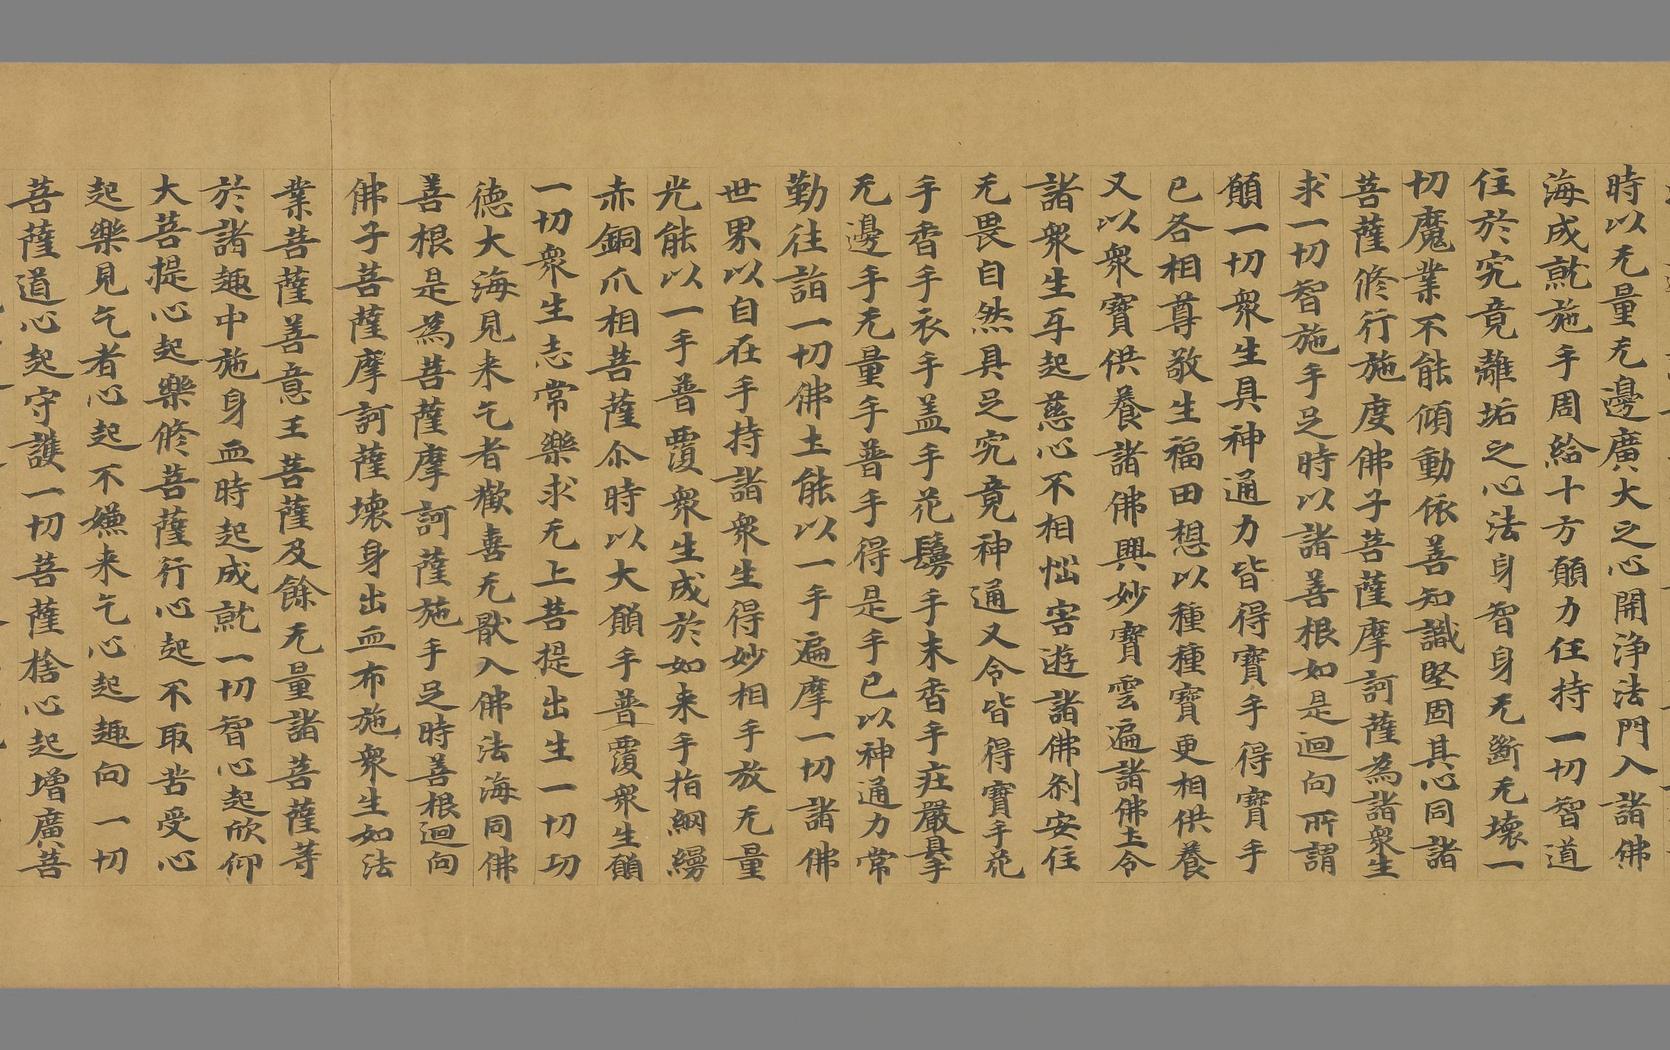 時以无量无邊廣大之心開浄法門入諸佛
海成就施手周給十方願力任持一切智道
住於究竟離垢之心法身智身无斷无壞一
切魔業不能傾動依善知識堅固其心同諸
菩薩修行施度佛子菩薩摩訶薩為諸衆生
求一切智施手足時以諸善根如是迴向所謂
願一切衆生具神通力皆得寶手得寶手
已各相尊敬生福田想以種種寶更相供養
又以衆寶供養諸佛興妙寶雲遍諸佛土令
諸衆生互起慈心不相惱害遊諸佛刹安住
无畏自然具足究竟神通又令皆得寶手花
手香手衣手盖手花鬘手末香手庄嚴具手
无邊手无量手普手得是手已以神通力常
勤往詣一切佛土能以一手遍摩一切諸佛
世界以自在手持諸衆生得妙相手放无量
光能以一手普覆衆生成於如来手指網縵
赤銅爪相菩薩尒時以大願手普覆衆生願
一切衆生志常樂求无上菩提出生一切功
德大海見来乞者歡喜无猒入佛法海同佛
善根是為菩薩摩訶薩施手足時善根迴向
佛子菩薩摩訶薩壞身出血布施衆生如法
業菩薩善意王菩薩及餘无量諸菩薩等
於諸趣中施身血時起成就一切智心起欣仰
大菩提心起樂修菩薩行心起不取苦受心
起樂見乞者心起不嫌来乞心起趣向一切
菩薩道心起守護一切菩薩捨心起增廣菩